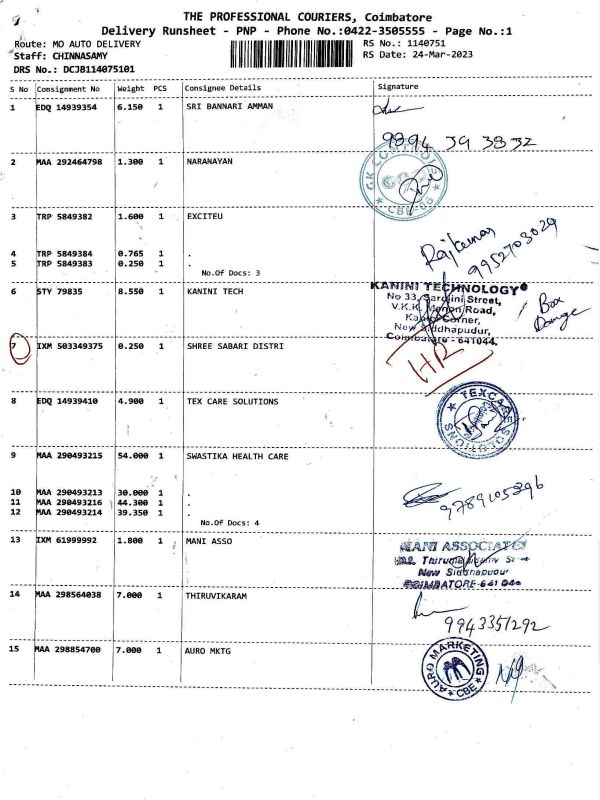 THE PROFESSIONAL COURIERS, Coimbatore
Delivery Runsheet - PNP - Phone No.:0422-3505555 - Page No.:1
Route: MO AUTO DELIVERY
RS No.: 1140751
Staff: CHINNASAMY
RS Date: 24-Mar-2023
DRS No.: DCJB114075101
S No Consignment No Weight PCS Consignee Details Signature
1 EDQ 14939354 6.150 1 SRI BANNARI AMMAN
9894 39 3832
2 MAA 292464798 1.300 1 NARANAYAN
CBE-06
3 TRP 5849382 1.600 1 EXCITEU
Rajkumar
9952703029
4 TRP 5849384 0.765 1 .
5 TRP 5849383 0.250 1 .
No.Of Docs: 3
6 STY 79835 8.550 1 KANINI TECH
KANINI TECHNOLOGY
No 33, Sarojini Street,
V.K.K. Menon Road,
Corner,
New Siddhapudur,
Coimbatore - 641044.
Box
Damage
7 IXM 503349375 0.250 1 SHREE SABARI DISTRI
HR
8 EDQ 14939410 4.900 1 TEX CARE SOLUTIONS
TEXCARE
SOLUTIONS
9 MAA 290493215 54.000 1 SWASTIKA HEALTH CARE
10 MAA 290493213 30.000 1 .
11 MAA 290493216 44.300 1 .
12 MAA 290493214 39.350 1 .
No.Of Docs: 4
13 IXM 61999992 1.800 1 MANI ASSO
MANI ASSOCIATES
New Siddhapudur
COIMBATORE-641 044
14 MAA 298564038 7.000 1 THIRUVIKARAM
9943351292
15 MAA 298854700 7.000 1 AURO MKTG
AURO MARKETING
CBE